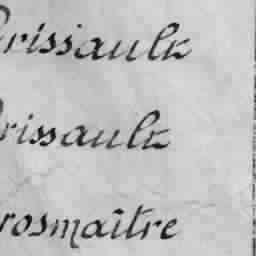 Brissault
Brissault
rosmaître